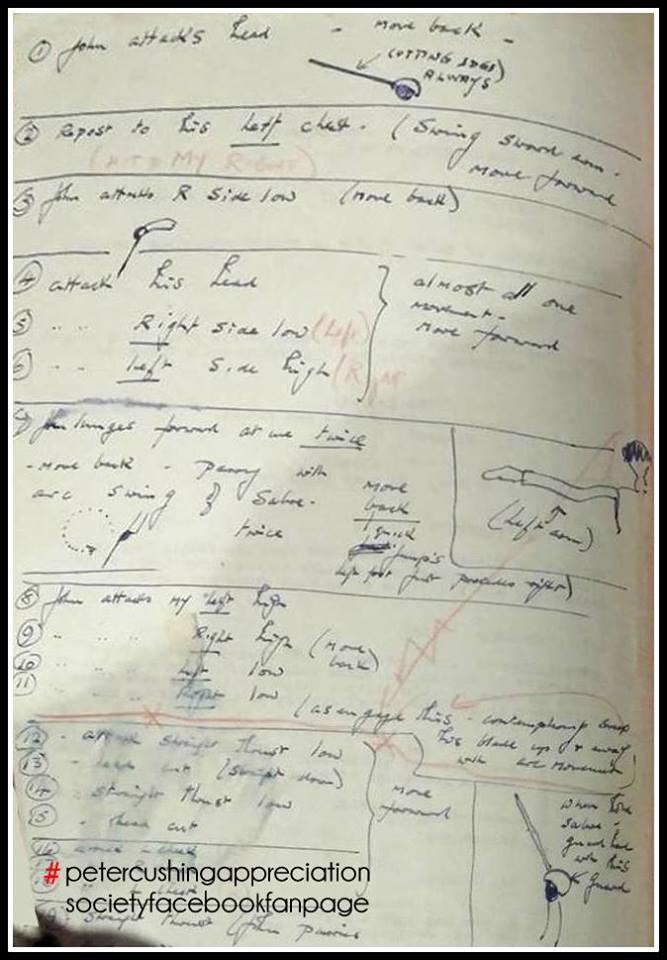 ① John attacks head - Move back -
(CUTTING EDGE)
ALWAYS
② Repost to his Left chest - (Swing sword arm -
Move forward
③ John attacks R Side low (Move back)
④ attack his head
almost all one
movement -
Move forward
⑤ .. .. Right side low (Left)
⑥ .. .. Left side high (Right
John lunges forward at me twice
- Move back - parry with
arc swing of Sabre -
twice
Move
back
quick
jumps
left foot just precedes right)
(Left arm)
⑧ John attacks my Left high
⑨ .. .. .. Right high (Move
back)
⑩ .. .. .. Left low
11 .. .. .. Right low
(as engage this -
his blade up & away
with arc movement
12 - attack straight thrust low
13 - cut (swipt down)
14 - straight thrust low
15 - head cut
Move
forward
when
sabre
guard head
with this
guard
# petercushingappreciation
societyfacebookfanpage
straight thrust (John parries